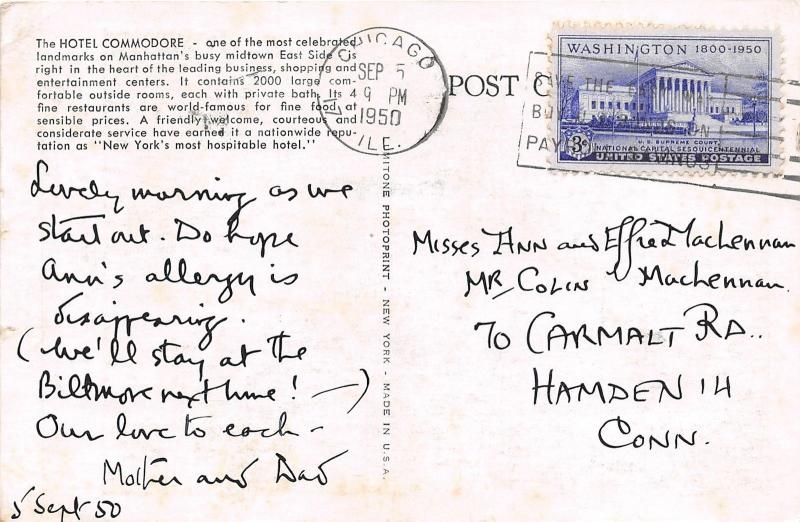 The HOTEL COMMODORE - one of the most celebrated
landmarks on Manhattan's busy midtown East Side is
right in the heart of the leading business, shopping and
entertainment centers. It contains 2000 large com-
fortable outside rooms, each with private bath. Its 4
fine restaurants are world-famous for fine food at
sensible prices. A friendly welcome, courteous and
considerate service have earned it a nationwide repu-
tation as "New York's most hospitable hotel."
Lovely morning as we
start out. Do hope
Ann's allergy is
disappearing.
(We'll stay at the
Biltmore next time! —)
Our love to each -
Mother and Dad
5 Sept 50
MITONE PHOTOPRINT - NEW YORK - MADE IN U.S.A.
CHICAGO
SEP 5
9 PM
1950
ILL.
POST C
SAVE THE
PAY
WASHINGTON 1800-1950
U. S. SUPREME COURT
NATIONAL CAPITAL SESQUICENTENNIAL
3¢
UNITED STATES POSTAGE
Misses Ann and Effie MacLennan
Mr Colin MacLennan
70 Carmalt Rd..
Hamden 14
Conn.